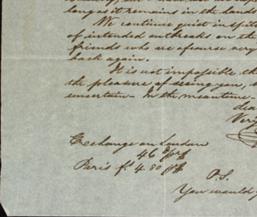 long as it remain in the
We continue quiet in spite
of intended outbreaks on the
friends who are of course very
back again.
It is not impossible th
the pleasure of seeing you,
uncertain. In the meantime
Very
Exchange on London
46
Paris f. 4.80
P.S.
You would